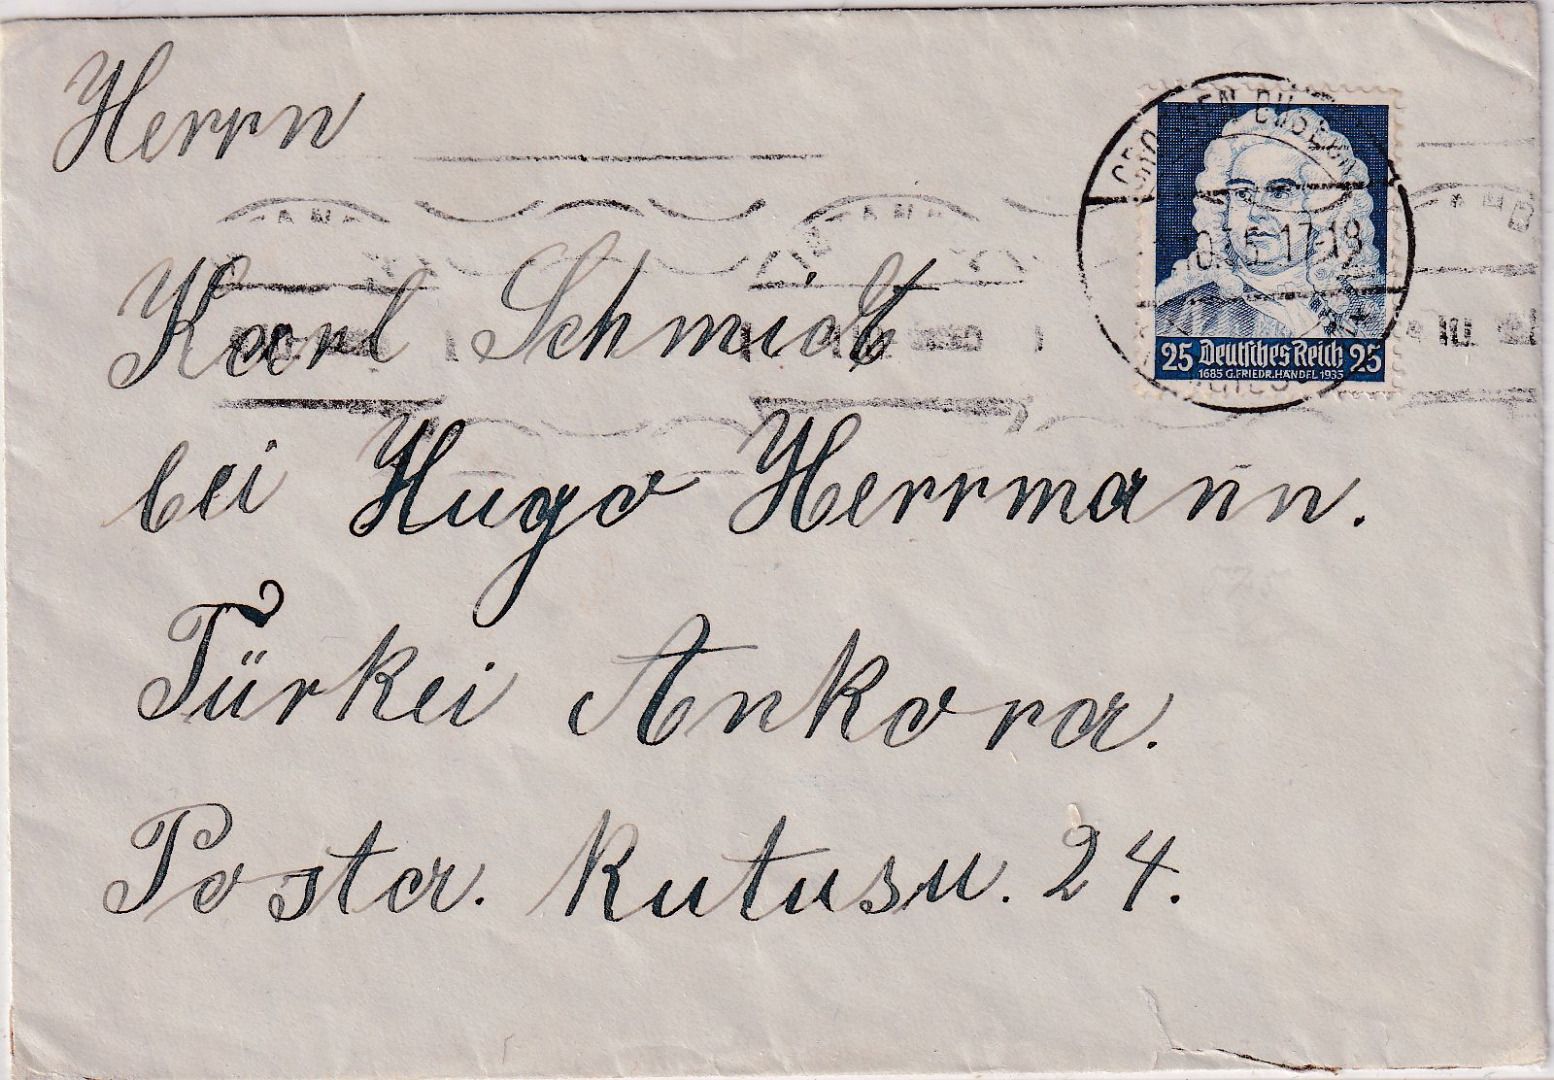 Herrn
Karl Schmidt
bei Hugo Herrmann.
Türkei Ankara.
Posta. Kutusu. 24.
25 Deutsches Reich 25
1685 G.FRIEDR.HÄNDEL 1935
17-18